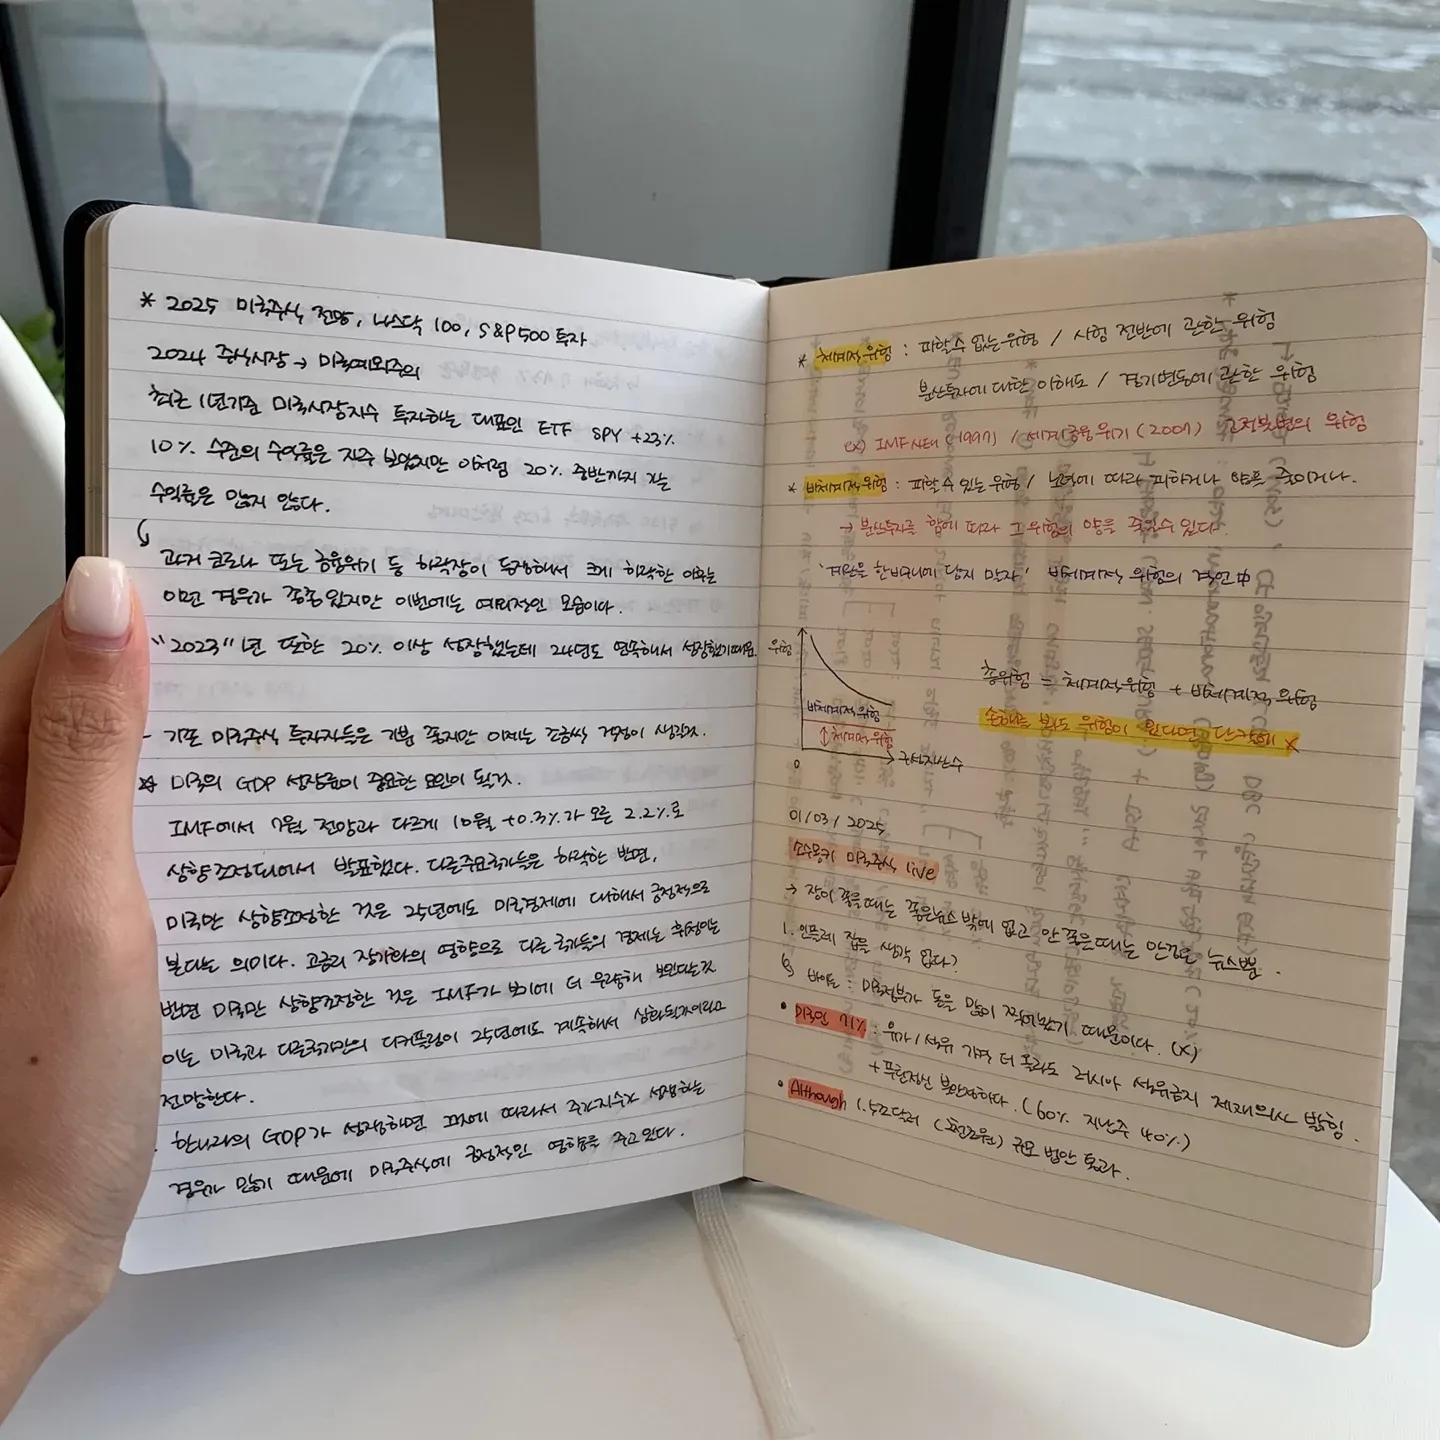 * 2025 미국주식 전망, 나스닥 100, S&P500 투자
2024 증식시장 → 미국예외주의
최근 1년기준 미국시장지수 투자하는 대표인 ETF SPY +23%
10% 수준의 수익률은 자주 보였지만 이처럼 20% 중반까지 가는
수익률은 많지 않다.
과거 코로나 또는 금융위기 등 하락장이 등장해서 크게 하락한 이후는
이런 경우가 종종 있지만 이번에는 예외적인 모습이다.
"2023"년 또한 20% 이상 성장했는데 24년도 연속해서 성장했기때문.
- 기존 미국주식 투자자들은 기분 좋지만 이제는 조금씩 걱정이 생길것.
* 미국의 GDP 성장률이 중요한 요인이 될것.
IMF에서 7월 전망과 다르게 10월 +0.3%가 오른 2.2%로
상향조정되어서 발표했다. 다른주요국가들은 하락한 반면,
미국만 상향조정한 것은 25년에도 미국경제에 대해서 긍정적으로
본다는 의미다. 고금리 장기화의 영향으로 다른 국가들의 경제는
반면 미국만 상향조정한 것은 IMF가 보기에 더 우량해 보인다는것
이는 미국과 다른국가간의 디커플링이 25년에도 계속해서 심화될것이라고
전망한다.
. 한나라의 GDP가 성장하면 그에 따라서 주가지수가 성장하는
경우가 많기 때문에 미국주식에 긍정적인 영향을 주고 있다.
* 체계적위험 : 피할수 없는 위험 / 시험 전반에 관한 위험
분산투자에 대한 이해도 / 경기변동에 관한 위험
ex) IMF사태 (1997) / 세계금융위기 (2007) 고정불변의 위험
* 비체계적위험 : 피할 수 있는 위험 / 노력에 따라 피하거나 양은 줄이거나.
→ 분산투자를 함에 따라 그 위험의 양을 줄일수 있다.
'계란을 한바구니에 담지 말자' 비체계적 위험의 격언中
위험
비체계적 위험
↕ 체계적 위험
0
→ 구성자산수
총위험 = 체계적 위험 + 비체계적 위험
손해를 봐도 위험이 된다면 x
01/03/2025
소수몽키 미국주식 live
→ 장이 좋을때는 좋은뉴스 밖에 없고 안 좋은때는 안좋은 뉴스뿐.
1. 인플레 잡을 생각 없다?
↳ 바이든 : 미국정부가 돈을 많이 찍어냈기 때문이다. (X)
• 미국인 71% : 유가/석유 가격 더 올라도 러시아 석유금지 제재의사 밝힘.
+ 푸틴정신 불안정하다. (60% 지난주 40%)
• Although 1.5조달러 ( ) 규모 법안 통과.